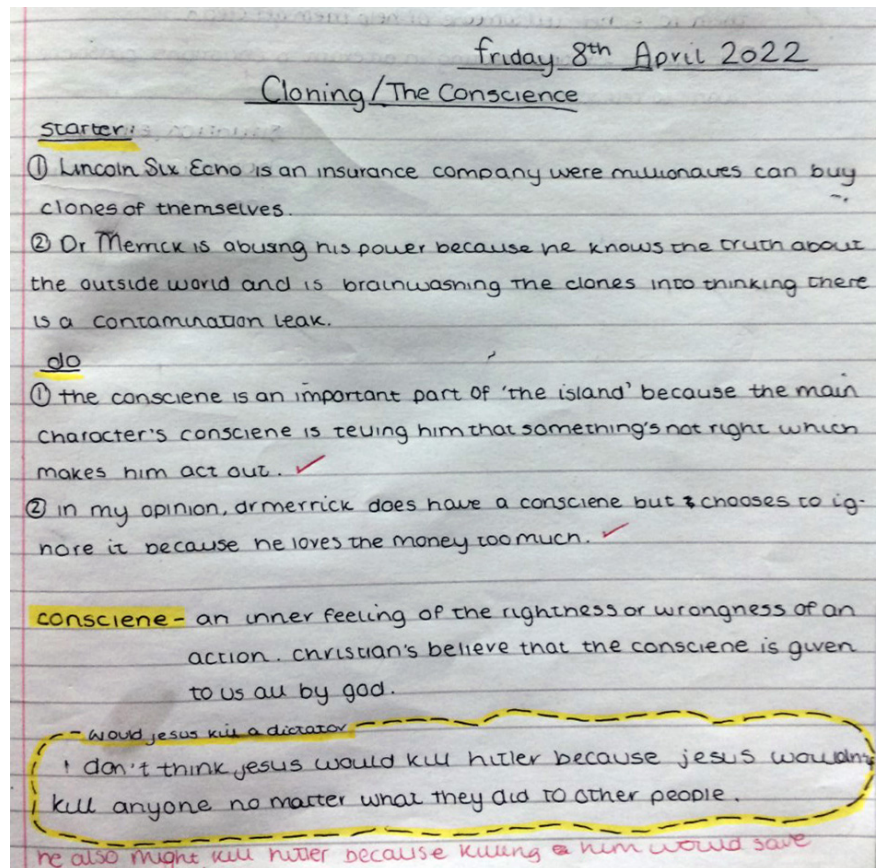 friday 8th April 2022
Cloning/The Conscience
starter:
① Lincoln Six Echo is an insurance company were millionaires can buy
clones of themselves.
② Dr Merrick is abusing his power because he knows the truth about
the outside world and is brainwashing the clones into thinking there
is a contamination leak.
do
① the consciene is an important part of 'the island' because the main
character's consciene is telling him that something's not right which
makes him act out. ✓
② in my opinion, dr merrick does have a consciene but chooses to ig-
nore it because he loves the money too much. ✓
consciene - an inner feeling of the rightness or wrongness of an
action. christian's believe that the consciene is given
to us all by god.
- woud jesus kill a dictator
i don't think jesus would kill hitler because jesus wouldn't
kill anyone no matter what they did to other people.
he also might kill hitler because killing him would save